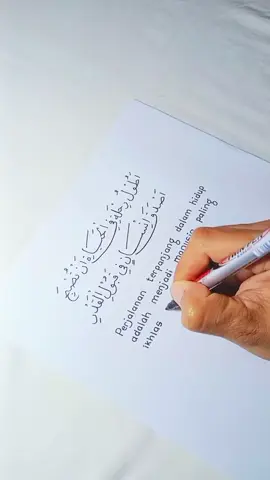 اَطْوَلُ رِحْلَةٍ فِي الْحَيَاةِ اَنْ تُصْبِحَ
اَصْدَقَ اِنْسَانٍ فِي قَبُوْلِ الْقَدَرِ
Perjalanan terpanjang dalam hidup
adalah menjadi manusia paling
ikhlas